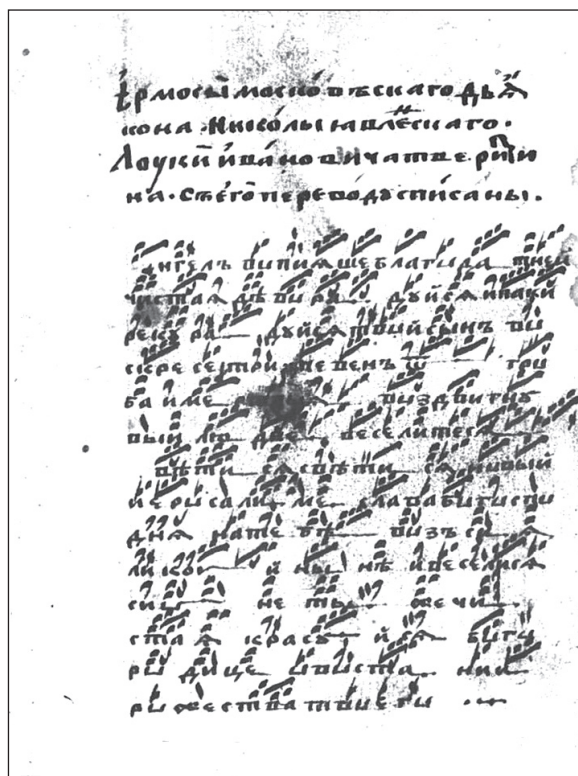 ермосы московъскаго дьꙗ
кона Николы ꙗвлескаго.
Лоуки ивановича твери
на. переводъ списаны.
ангелъ вопиѧше благода тнеи
чистаѧ дѣво ра дуйсѧ и паки
рекъ ра дуйсѧ твой сынъ во
скресе три невенъ ѿ гро
ба и ме воздвигну
вый лю дие веселитесѧ
свѣти сѧ свѣти сѧ новый
иерусалиме слава бо госпо
днѧ на тебѣ возъсиѧ
ликои и ны нѣ и веселисѧ
сио не ты же чи
стаѧ красу йсѧ бого
ро дице о воста нии
рожества твоего